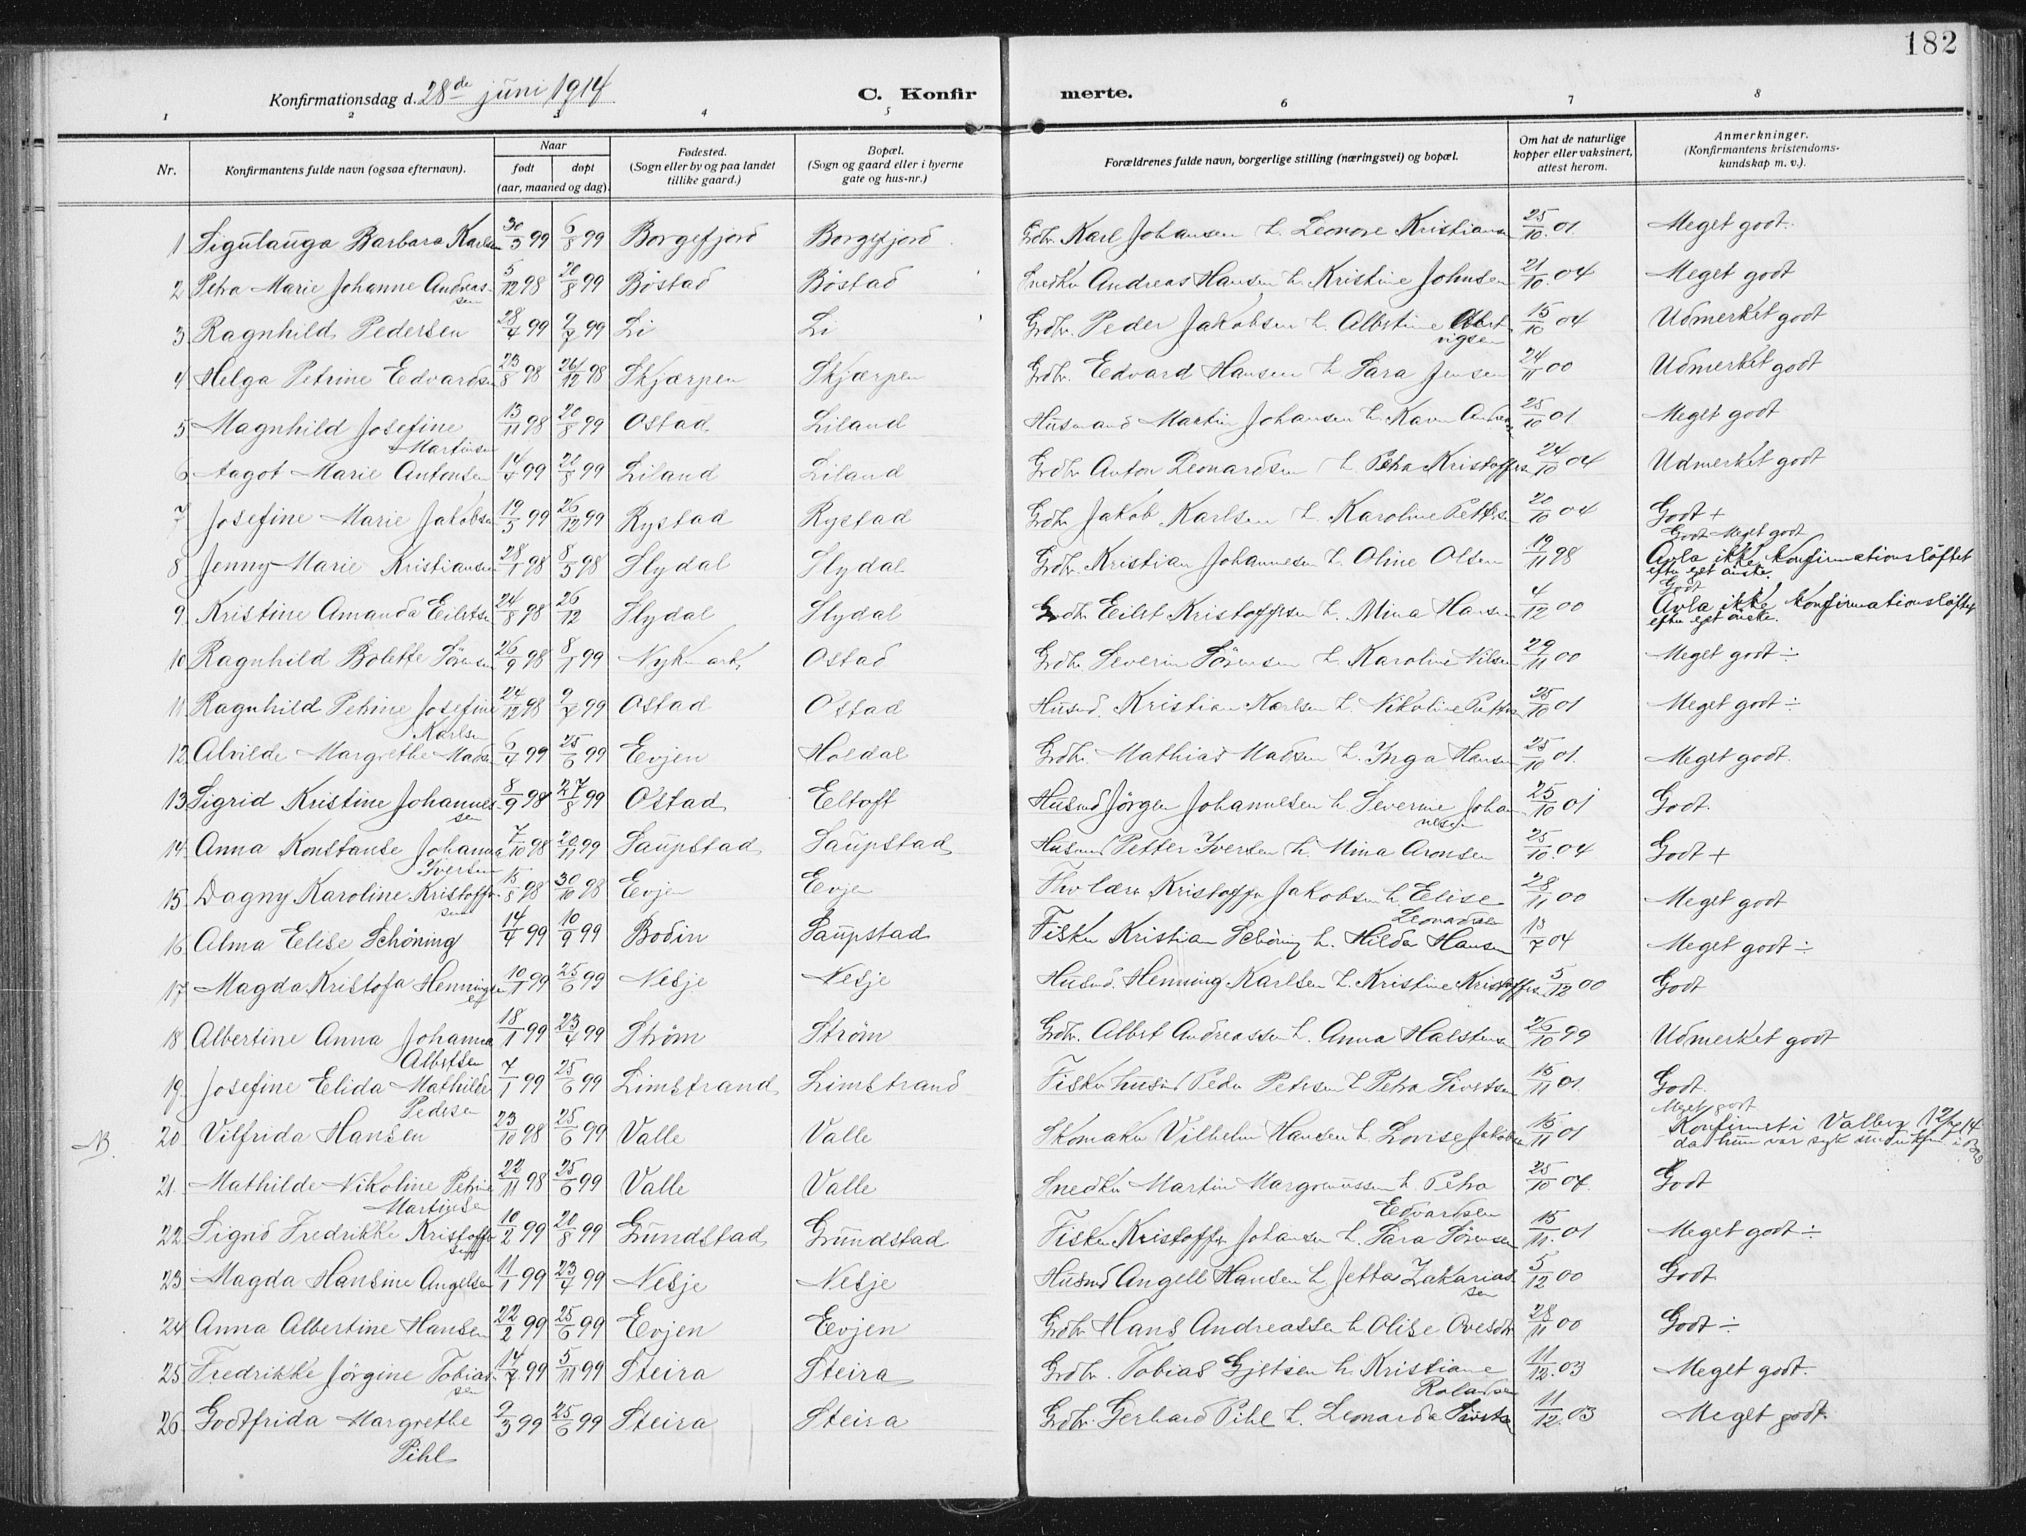 182
Konfirmationsdag d. 28de juni 1914 C. Konfirmerte.
1 2 3 4 5 6 7 8
Nr. Konfirmantens fulde navn (ogsaa efternavn). Naar født døpt (aar, maaned og dag). Fødested. (Sogn eller by og paa landet tillike gaard.) Bopæl. (Sogn og gaard eller i byerne gate og hus-nr.) Forældrenes fulde navn, borgerlige stilling (næringsvei) og bopæl. Om hat de naturlige kopper eller vaksinert, attest herom. Anmerkninger. (Konfirmantens kristendoms-kundskap m. v.).
1 Sigulauga Barbara Karlsen 30/3 99 6/8 99 Borgefjord Borgefjord Grdbr. Karl Johansen h. Leonore Kristiansen 25/10 01 Meget godt.
2 Petra Marie Johanne Andreassen 5/12 98 20/8 99 Bøstad Bøstad Snedker Andreas Hansen h. Kristine Johnsen 21/10 04 Meget godt
3 Ragnhild Pedersen 28/4 99 9/7 99 Li Li Grdbr. Peder Jakobsen h. Albertine vigsen 15/10 04 Udmerket godt
4 Helga Petrine Edvardsen 23/8 98 26/12 98 Skjærpen Skjærpen Grdbr. Edvard Hansen h. Sara Jensen 24/11 00 Udmerket godt
5 Magnhild Josefine Martinsen 13/11 98 20/8 99 Ostad Liland Husmand Martin Johansen h. Karen 25/10 01 Meget godt
6 Aagot Marie Antonsen 14/4 99 21/8 99 Liland Liland Grdbr Anton Leonardsen h. Petra Kristoffers 24/10 04 Udmerket godt
7 Josefine Marie Jakobsen 19/5 99 26/12 99 Rystad Rystad Grdbr Jakob Karlsen h. Karoline Pettersen 20/10 04 Godt +
8 Jenny Marie Kristiansen 28/1 98 8/5 98 Slydal Slydal Grdbr. Kristian Johannesen h. Oline Olsen 19/11 98 Godt Meget godt Avla ikke konfirmationsløftet efter eget ønske.
9 Kristine Amanda Eilertsen 24/8 98 26/12 Slydal Slydal Grdbr Eilert Kristoffersen h. Mina Hansen 4/12 00 Godt Avla ikke konfirmationsløftet efter eget ønske.
10 Ragnhild Bolette Sørensen 26/9 98 8/1 99 Nykmark Ostad Grdbr Severin Sørensen h. Karoline Nilsen 29/11 00 Meget godt ÷
11 Ragnhild Petrine Josefine Karlsen 24/12 98 9/7 99 Ostad Ostad Husmd. Kristian Karlsen h. Nikoline Petters 25/10 01 Meget godt ÷
12 Alvilde Margrethe Madsen 6/4 99 25/6 99 Evjen Holdal Grdbr. Mathias Madsen h. Inga Hansen 25/10 01. Meget godt.
13 Sigrid Kristine Johannessen 8/9 98 27/8 99 Ostad Eltoft Husmd Jørgen Johannesen h. Severine Johannesen 25/10 01 Godt.
14 Anna Konstanse Johanna Iversen 7/10 98 20/11 99 Saupstad Saupstad Husmd Petter Iversen h. Mina Aronsen 25/10 04 Godt +
15 Dagny Karoline Kristoffersen 15/8 98 30/10 98 Evjen Evjen Kristoffer Jakobsen h. Elise Leonardsen 28/11 00 Meget godt
16 Alma Elise Schöning 14/4 99 10/9 99 Bodin Saupstad Fisker Kristian Schöning h. Hilda Hansen 13/7 04 Meget godt ÷
17 Magda Kristofa Henningsen 10/1 99 25/6 99 Nesje Nesje Husmd. Henning Karlsen h. Kristine Kristoffers 5/12 00 Godt
18 Albertine Anna Johanna Albertsen 18/1 99 23/4 99 Strøm Strøm Grdbr. Albert Andreassen h. Anna Halstensen 26/10 99 Udmerket godt
19 Josefine Elida Mathilde Pedersen 7/1 99 25/6 99 Limstrand Limstrand Fisker husmd Peder Petersen h. Petra Sivertsen 15/11 01. Godt.
NB. 20 Vilfrida Hansen 23/10 98 25/6 99 Valle Valle Skomaker Vilhelm Hansen h. Lovise Jakobsen 15/11 01 Meget godt Konfirmert i Valberg 12/7 14 da hun var syk under konf. i
21 Mathilde Nikoline Petrine Martinsen 22/11 98 25/6 99 Valle Valle Snedker Martin Margomussen h. Petra Edvardsen 25/10 04. Godt
22 Signo Fredrikke Kristoffersen 10/2 99 20/8 99 Grundstad Grundstad Fisker Kristoffer Johansen h. Sara Sørensen 15/11 01 Meget godt ÷
23 Magda Hansine Angelsen 11/1 99 23/4 99 Nesje Nesje Husmd Angell Hansen h. Jetta Zakariassen 5/12 00 Godt
24 Anna Albertine Hansen 22/2 99 25/6 99 Evjen Evjen Grdbr Hans Andreassen h. Olise Ovesdtr 28/11 00 Godt ÷
25 Fredrikke Jørgine Tobiassen 14/7 99 5/11 99 Steira Steira Grdbr. Tobias Gjertsen h. Kristiane Roladsen 11/12 03 Meget godt.
26 Godtfrida Margrethe Pihl 9/3 99 25/6 99 Steira Steira Grdbr. Gerhard Pihl h. Leonarda Sivertsen 11/12 03 Meget godt.